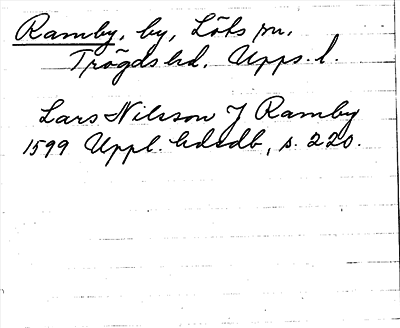 Ramby, by, Löts sn,
Trögds hd. Upps. l.
Lars Nilsson J Ramby
1599 Uppl. hdsdb, s. 220.